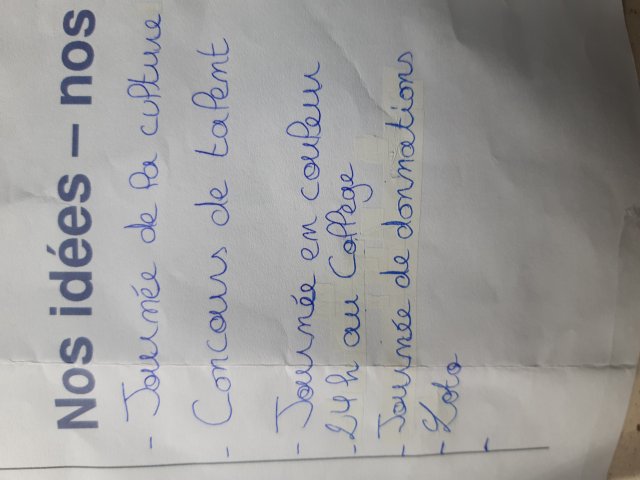 Nos idées – nos
- Journée de la culture
- Concours de talent
- Journée en couleur
- 24h au Collège
- Journée de donnations
- Loto
-